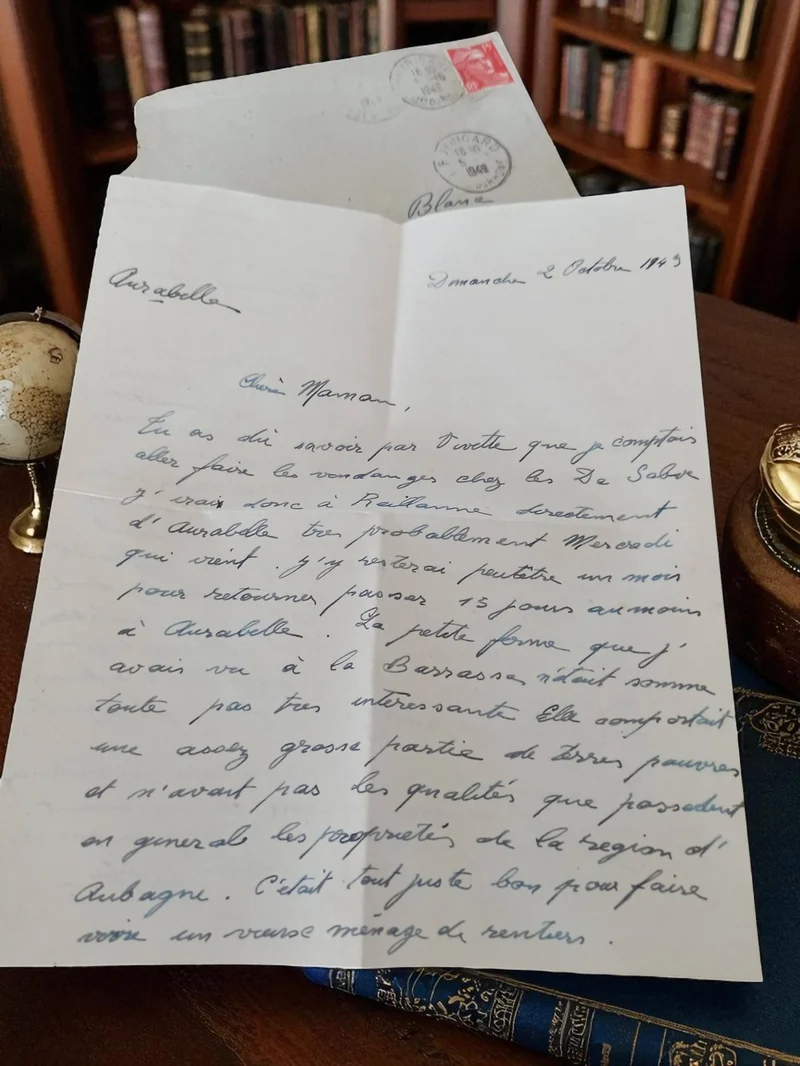 PUYRICARD
18 30
1949
PUYRICARD
16 30
5
1949
Blanc
Aurabelle
Dimanche 2 Octobre 1949
Chère Maman,
Tu as dû savoir par Vivette que je comptais
aller faire les vendanges chez les De Sabre
j'irais donc à Reillanne directement
d'Aurabelle très probablement Mercredi
qui vient. J'y resterai peutêtre un mois
pour retourner passer 15 jours au moins
à Aurabelle. La petite ferme que j'
avais vu à la Barrasse n'était somme
toute pas très intéressante Elle comportait
une assez grosse partie de terres pauvres
et n'avait pas les qualités que possedent
en general les propriétés de la region d'
Aubagne. C'était tout juste bon pour faire
vivre un vieux ménage de rentiers.